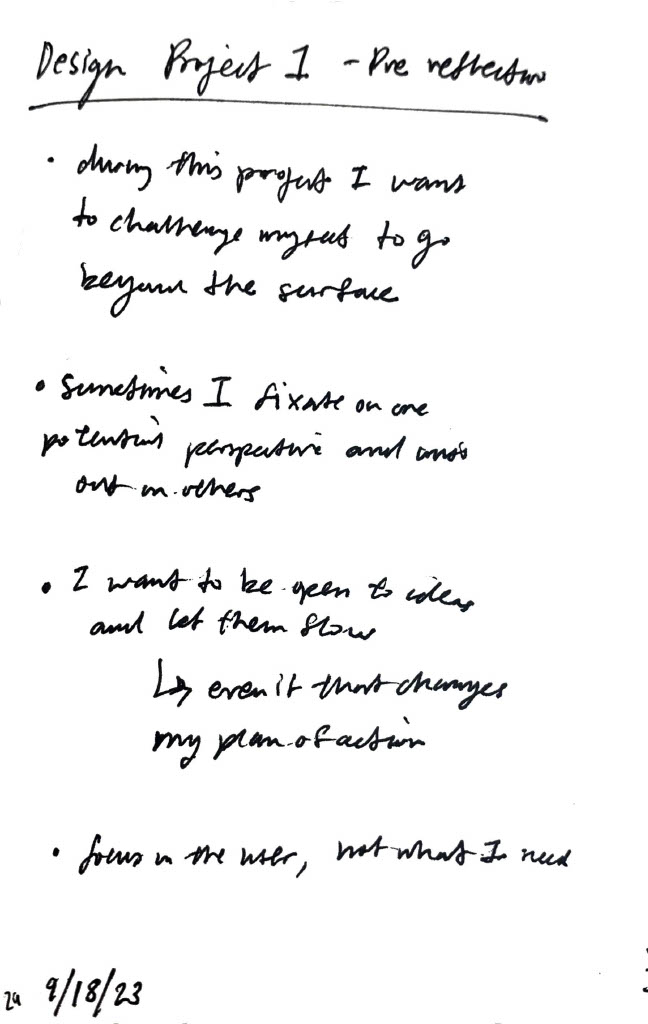 Design Project 1 - Pre reflection
• during this project I want
to challenge myself to go
beyond the surface
• Sometimes I fixate on one
potential perspective and miss
out on others
• I want to be open to ideas
and let them flow
↳ even if that changes
my plan of action
• focus on the user, not what I need
29 9/18/23